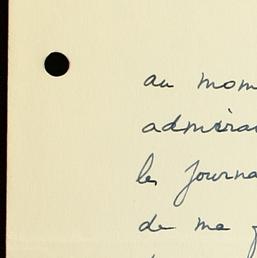 au mom
admira
les journa
de ma